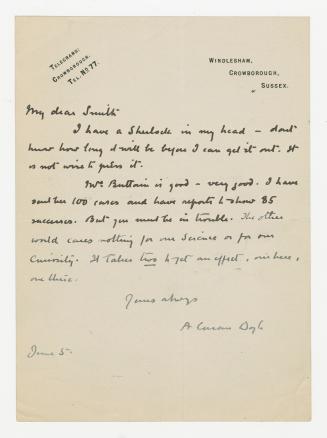 TELEGRAMS:
CROWBOROUGH.
TEL. NO 77.
WINDLESHAM,
CROWBOROUGH,
SUSSEX.
My dear Smith
I have a Sherlock in my head – dont
know how long it will be before I can get it out. It
is not wise to press it.
Mrs Brittain is good – very good. I have
sent her 100 cases and have reports to show 85
successes. But you must be in trouble. The other
world cares nothing for our Science or for our
Curiosity. It takes two to get an effect, one here,
one there.
Yours always
A Conan Doyle
June 5.